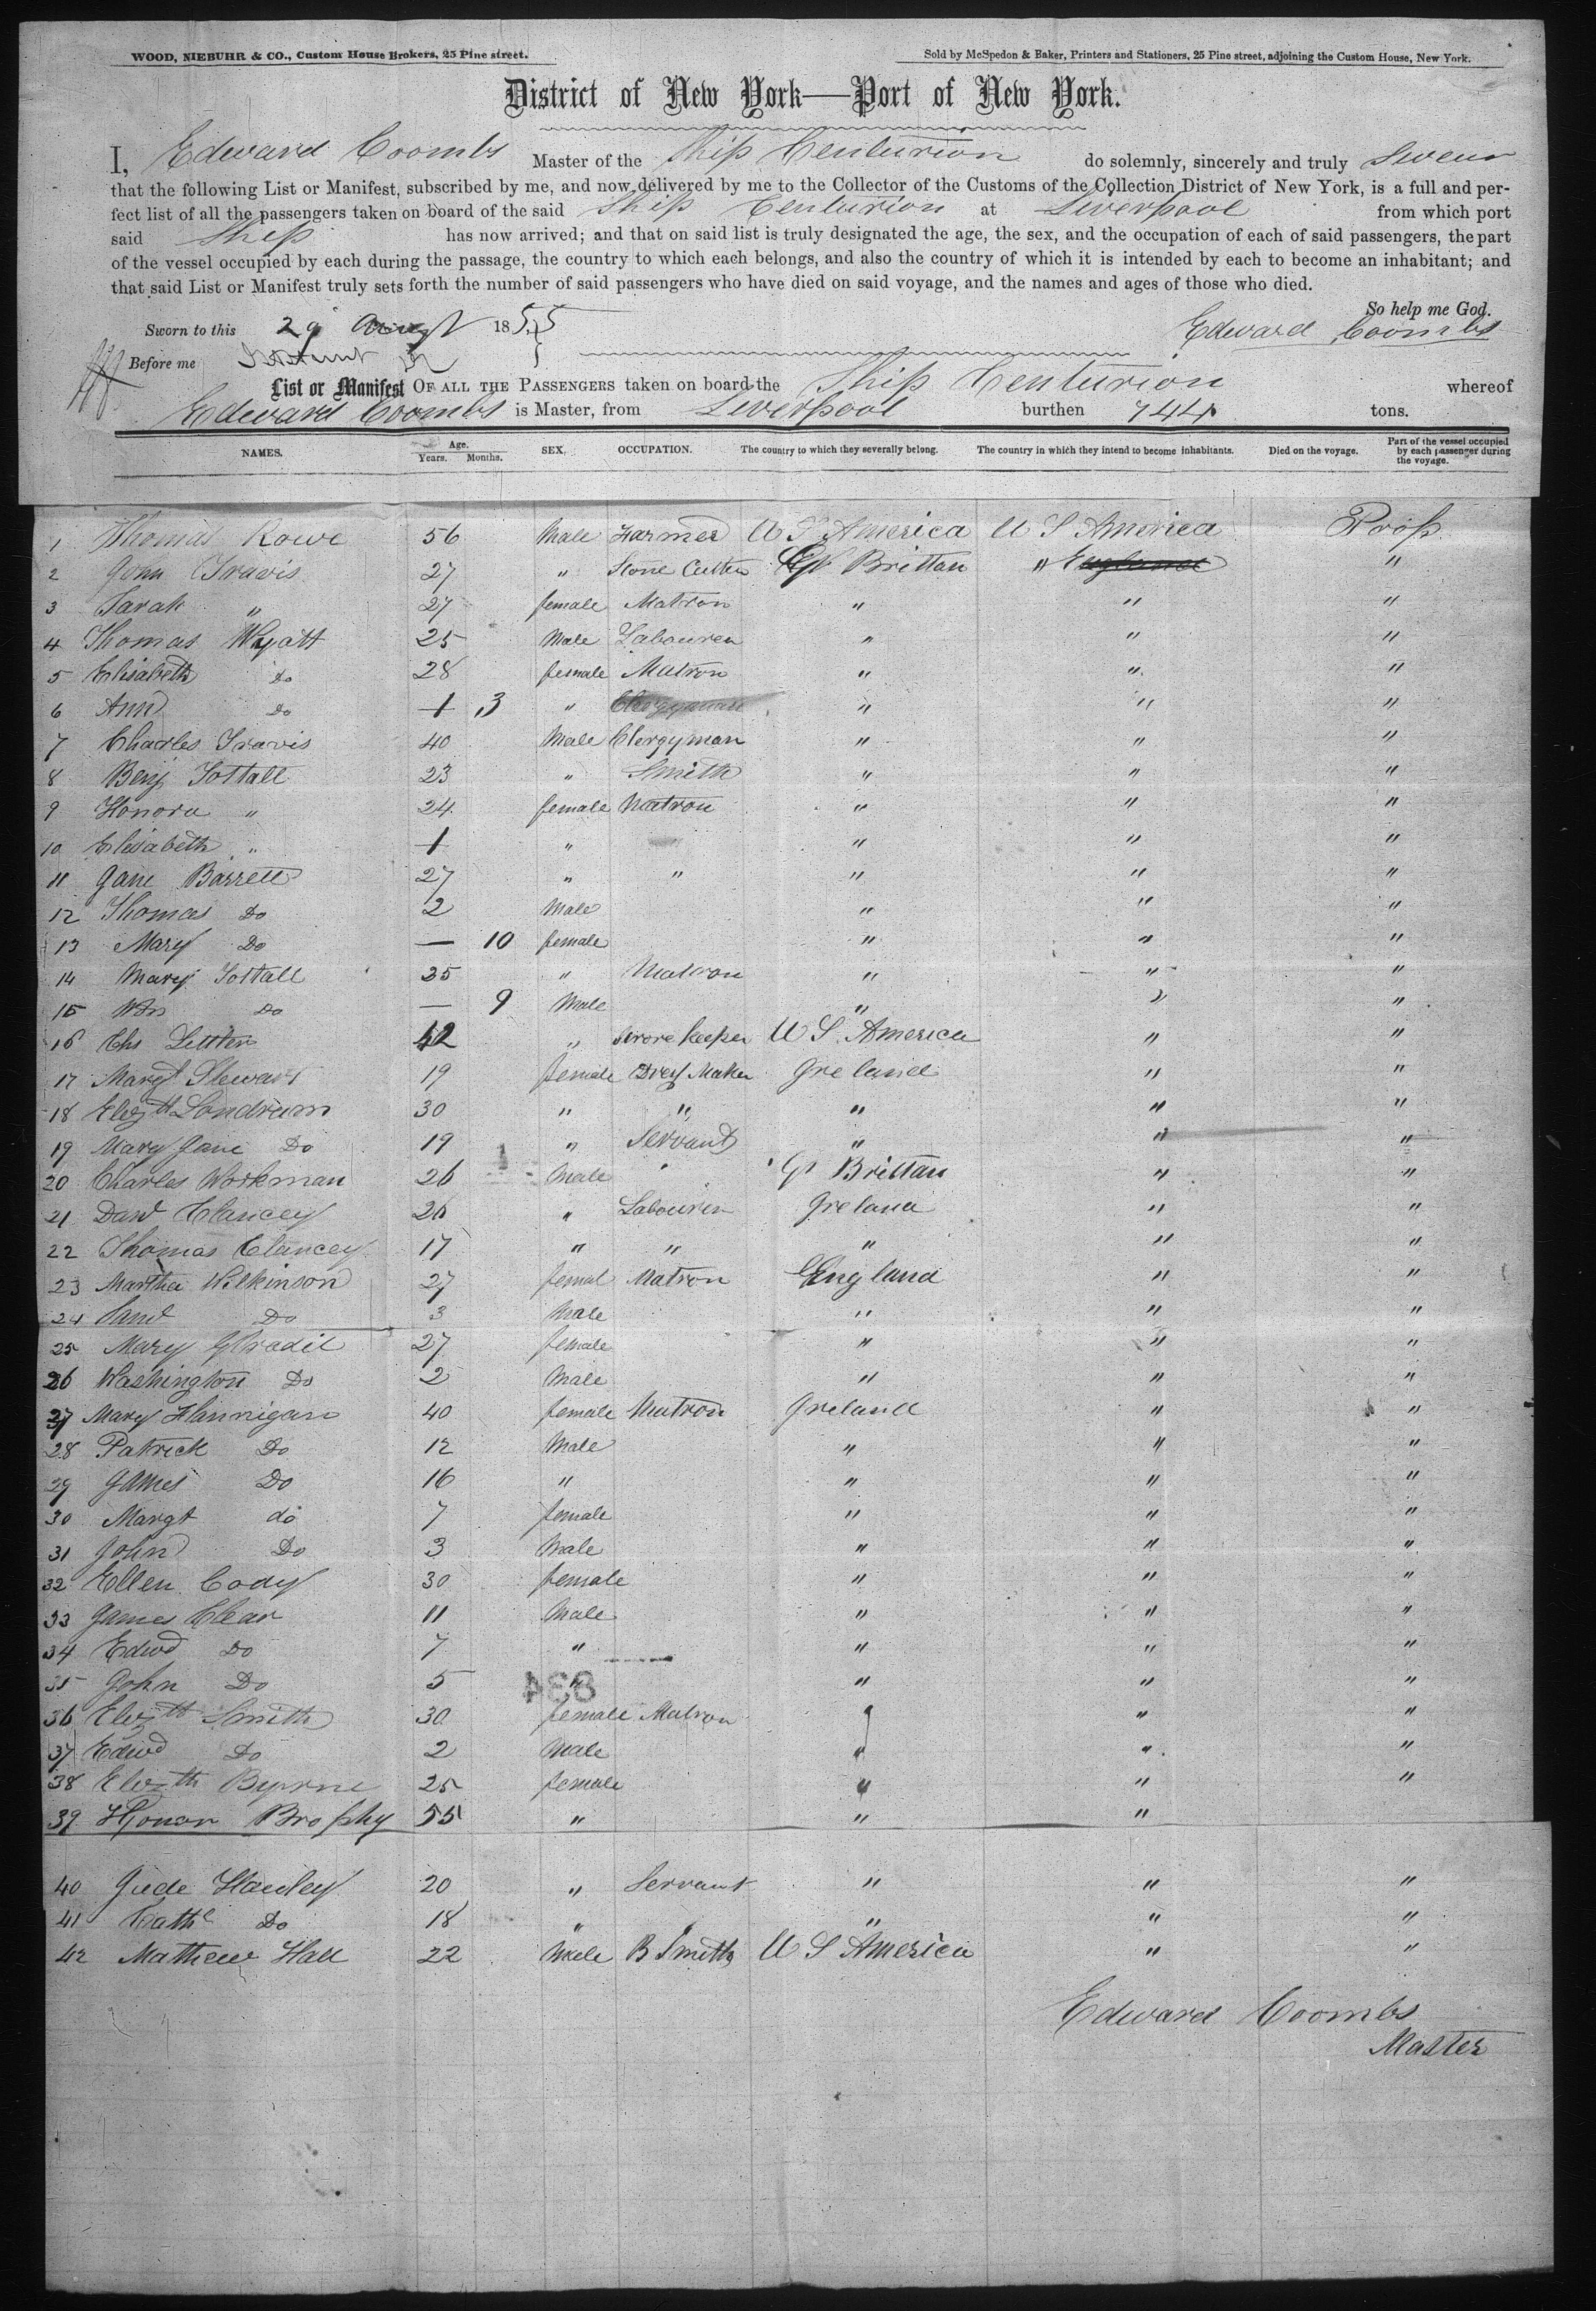 WOOD, NIEBUHR & CO., Custom House Brokers, 25 Pine street.
Sold by McSpedon & Baker, Printers and Stationers, 25 Pine street, adjoining the Custom House, New York.
District of New York—Port of New York.
I, Edward Coombs Master of the Ship Centurion do solemnly, sincerely and truly Swear
that the following List or Manifest, subscribed by me, and now delivered by me to the Collector of the Customs of the Collection District of New York, is a full and per-
fect list of all the passengers taken on board of the said Ship Centurion at Liverpool from which port
said Ship has now arrived; and that on said list is truly designated the age, the sex, and the occupation of each of said passengers, the part
of the vessel occupied by each during the passage, the country to which each belongs, and also the country of which it is intended by each to become an inhabitant; and
that said List or Manifest truly sets forth the number of said passengers who have died on said voyage, and the names and ages of those who died.
So help me God.
Sworn to this 29 Augst 1855
Edward Coombs
Before me
List or Manifest OF ALL THE PASSENGERS taken on board the Ship Centurion whereof
Edward Coombs is Master, from Liverpool burthen 744 tons.
NAMES. Age. Years. Months. SEX. OCCUPATION. The country to which they severally belong. The country in which they intend to become inhabitants. Died on the voyage. Part of the vessel occupied by each passenger during the voyage.
1 Thomas Rowe 56 Male Farmer U S America U S America Poop
2 John Travis 27 " Stone Cutter Gt Brittan " England "
3 Sarah " 27 female Matron " " "
4 Thomas Wyatt 25 Male Labourer " " "
5 Elisabeth Do 28 female Matron " " "
6 Ann Do 1 3 " Clergyman " " "
7 Charles Travis 40 Male Clergyman " " "
8 Benj Tottall 23 " Smith " " "
9 Honora " 24 female Matron " " "
10 Elisabeth " 1 " " " "
11 Jane Barrett 27 " " " " "
12 Thomas Do 2 Male " " "
13 Mary Do — 10 female " " "
14 Mary Tottall 35 " Matron " " "
15 Wm Do — 9 Male " " "
16 Chs 42 " Store keeper U S America " "
17 Margt Stewart 19 female Dress Maker Ireland " "
18 Elizth Londrum 30 " " " " "
19 Mary Jane Do 19 " Servant " " "
20 Charles Workman 26 Male " Gt Brittan " "
21 Dand Clancey 26 " Labourer Ireland " "
22 Thomas Clancey 17 " " " " "
23 Martha Wilkinson 27 femal Matron England " "
24 Do 3 Male " " "
25 Mary 27 female " " "
26 Washington Do 2 Male " " "
27 Mary Hannigan 40 female Matron Ireland " "
28 Patrick Do 12 Male " " "
29 James Do 16 " " " "
30 Margt do 7 female " " "
31 John Do 3 Male " " "
32 Ellen Cody 30 female " " "
33 James Clear 11 Male " " "
34 Edwd Do 7 " " " "
35 John Do 5 " " " "
834
36 Elizth Smith 30 female Matron " " "
37 Edwd Do 2 Male " " "
38 Elizth Byrne 25 female " " "
39 Honor Brophy 55 " " "
40 Jude Hanley 20 " Servant " " "
41 Cathe Do 18 " " " "
42 Mathew Hall 22 Male B Smith U S America " "
Edward Coombs
Master